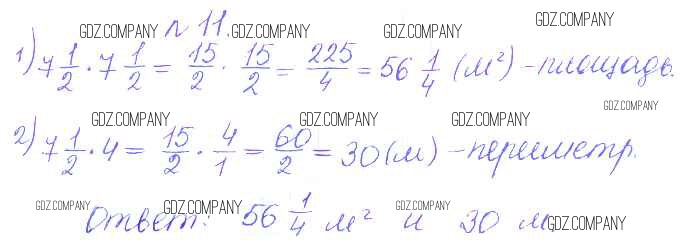 GDZ.COMPANY № 11. GDZ.COMPANY GDZ.COMPANY GDZ.COMPANY
1) 7 1/2 · 7 1/2 = 15/2 · 15/2 = 225/4 = 56 1/4 (м²) – площадь.
GDZ.COMPANY GDZ.COMPANY GDZ.COMPANY GDZ.COMPANY
2) 7 1/2 · 4 = 15/2 · 4/1 = 60/2 = 30 (м) – периметр.
GDZ.COMPANY GDZ.COMPANY GDZ.COMPANY GDZ.COMPANY
Ответ: 56 1/4 м² и 30 м